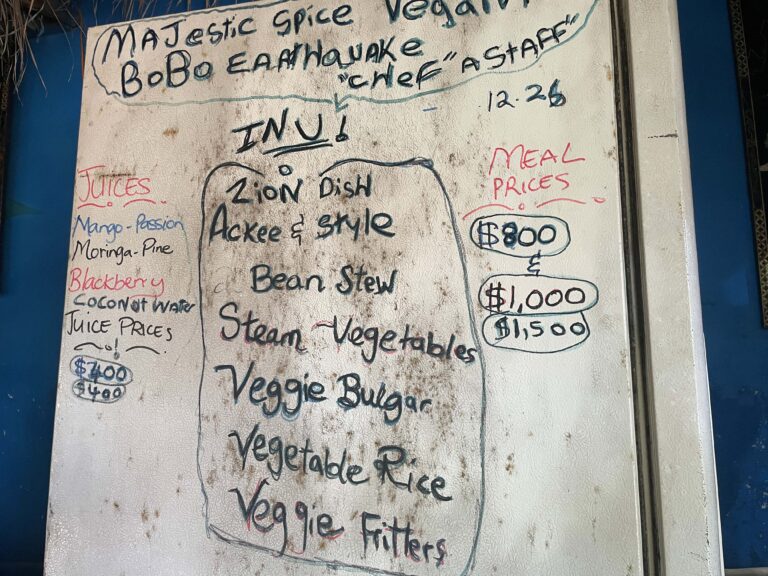 MAJESTIC SPICE Vegan
BOBO EARTHQUAKE
"CHEF" A STAFF"
12.26
INU!
JUICES
Mango-Passion
Moringa-Pine
Blackberry
COCONUT WATER
JUICE PRICES
$400
$400
ZION DISH
Ackee & style
Bean Stew
Steam Vegetables
Veggie Bulgar
Vegetable Rice
Veggie Fritters
MEAL
PRICES
$800
&
$1,000
$1,500